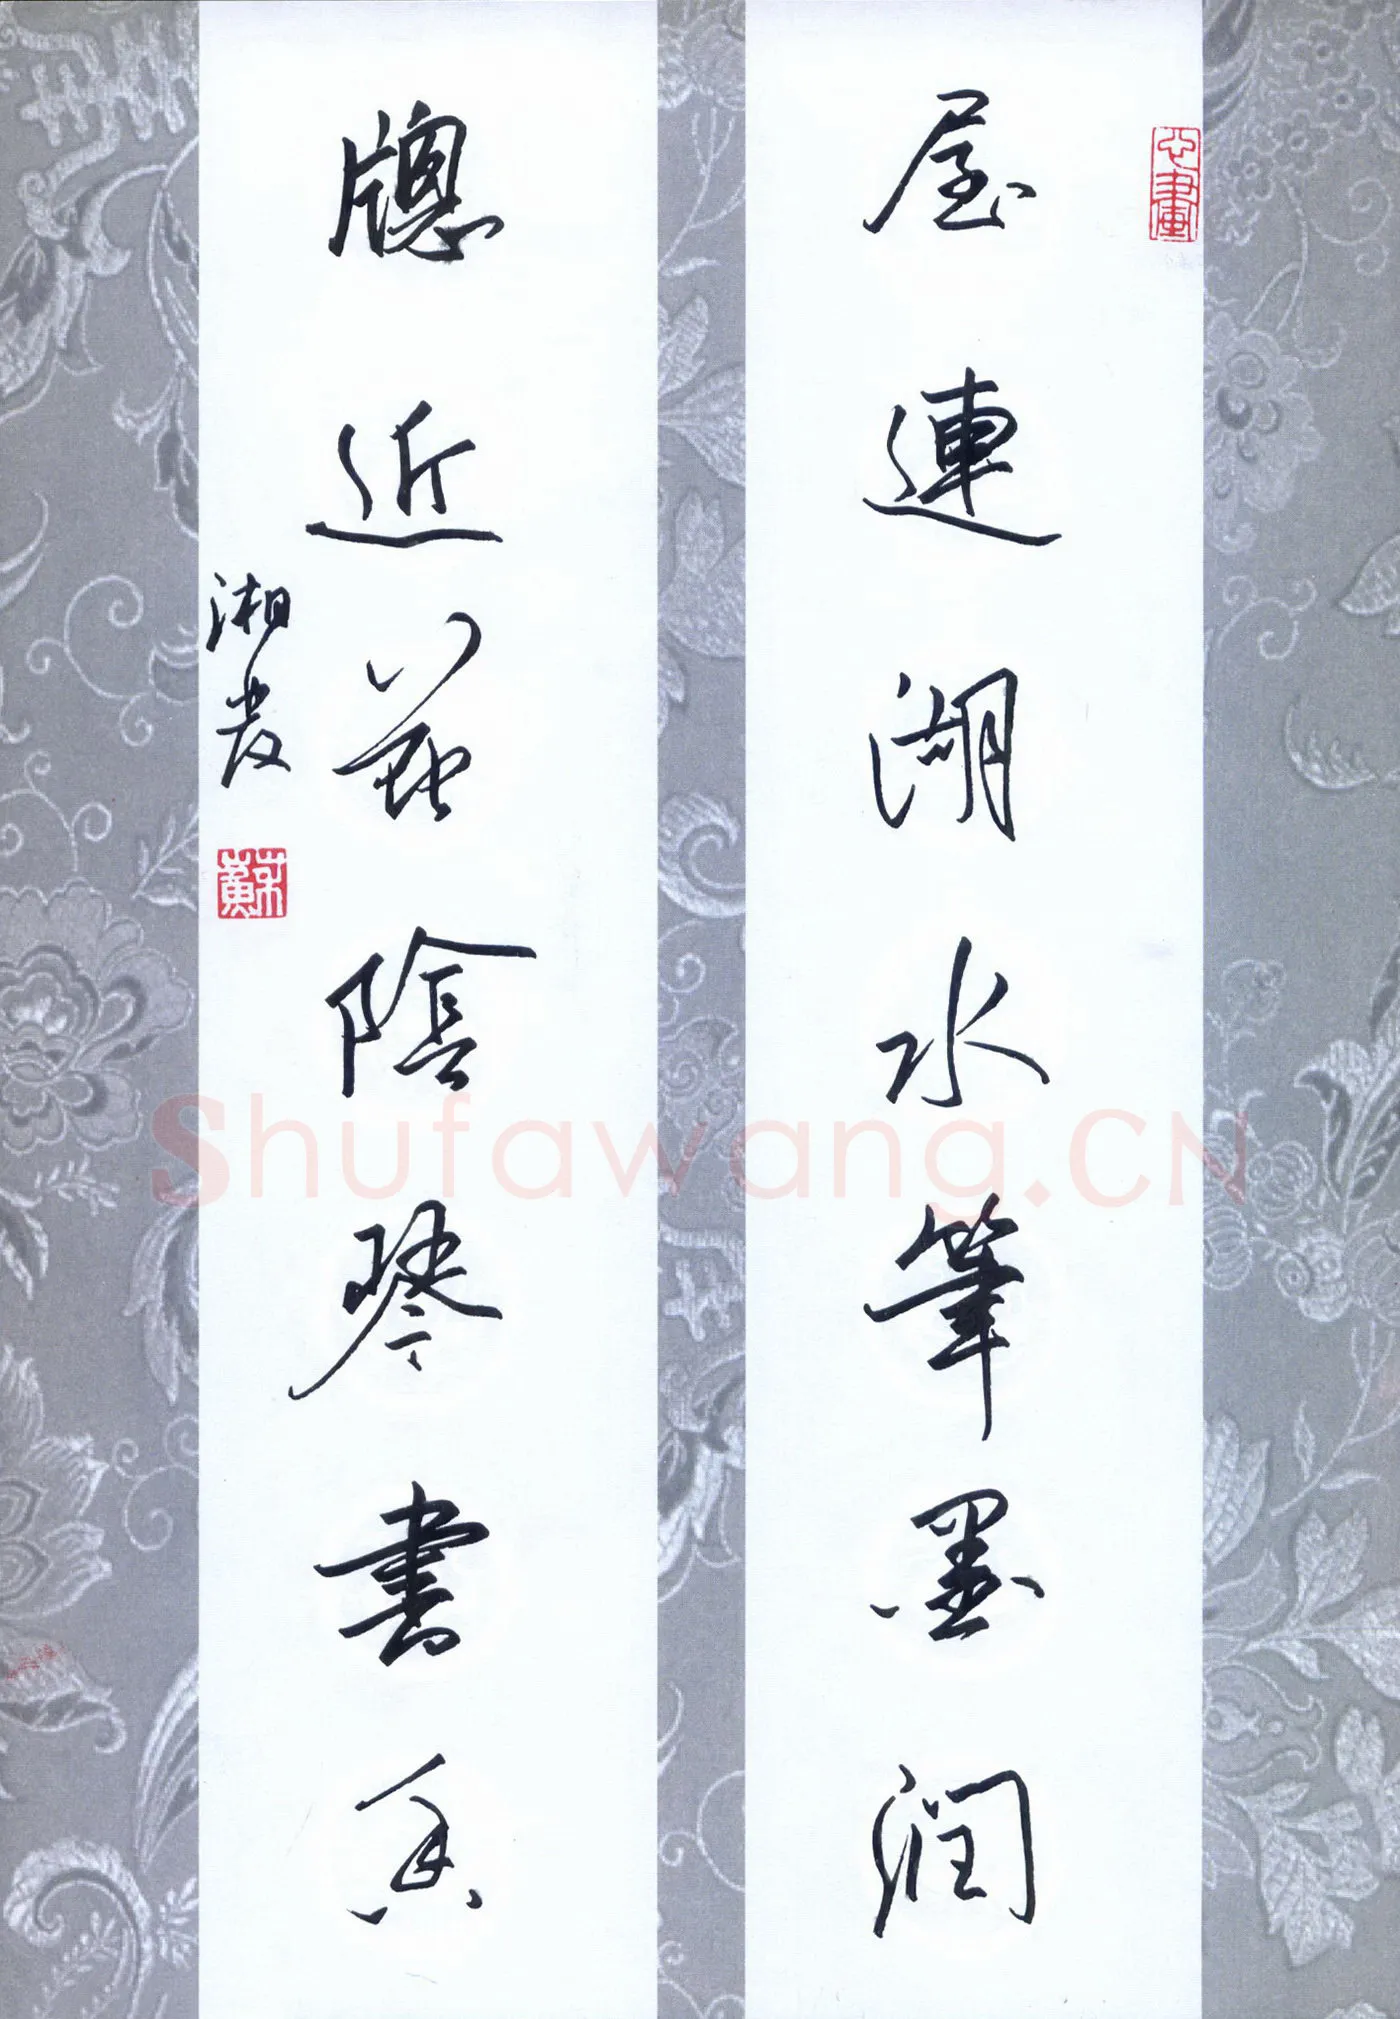 屋連湖水筆墨潤
心畫
牕近花陰琴書香
湘
Shufawang.CN